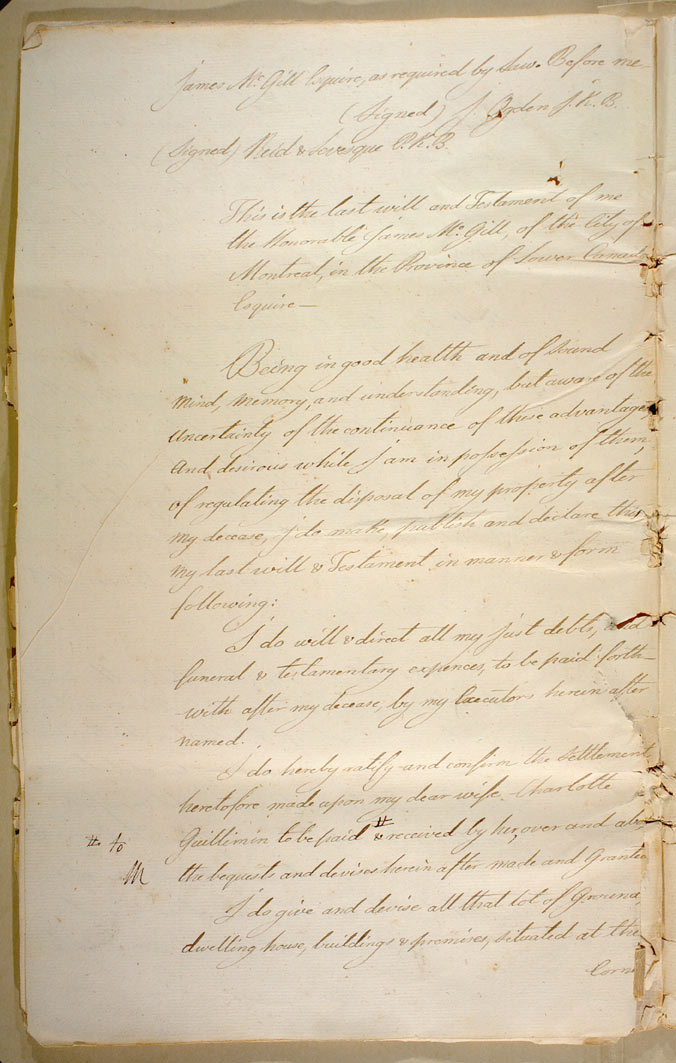 James Mc. Gill Esquire, as required by Law. Before me
(Signed) J. Ogden J. K. B.
(Signed) Reid & Levesque P. K. B.
This is the last will and Testament of me
the Honorable James Mc. Gill, of the City of
Montreal, in the Province of Lower Canada
Esquire —
Being in good health and of Sound
mind, memory, and understanding, but aware of the
uncertainty of the continuance of these advantages,
And desirous while I am in possession of them,
of regulating the disposal of my property after
my decease, I do make, publish and declare this
my last will & Testament in manner & form
following:
I do will & direct all my just debts, and
funeral & testamentary expences, to be paid forth-
-with after my decease, by my Executors herein after
named.
I do hereby ratify and confirm the Settlement
heretofore made upon my dear wife Charlotte
Guillimin to be paid # & received by her, over and abo
# to
M
the bequests and devises herein after made and Grante
I do give and devise all that lot of Ground,
dwelling house, buildings & premises, situated at the
Corn